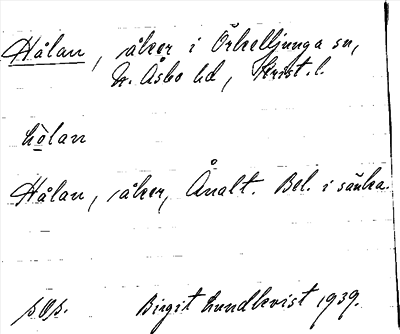 Hålan, åker i Örkelljunga sn,
N. Åsbo hd, Krist. l.
hòlan
Hålan, åker, Ånalt. Bel. i sänka.
Birgit Lundkvist 1939.